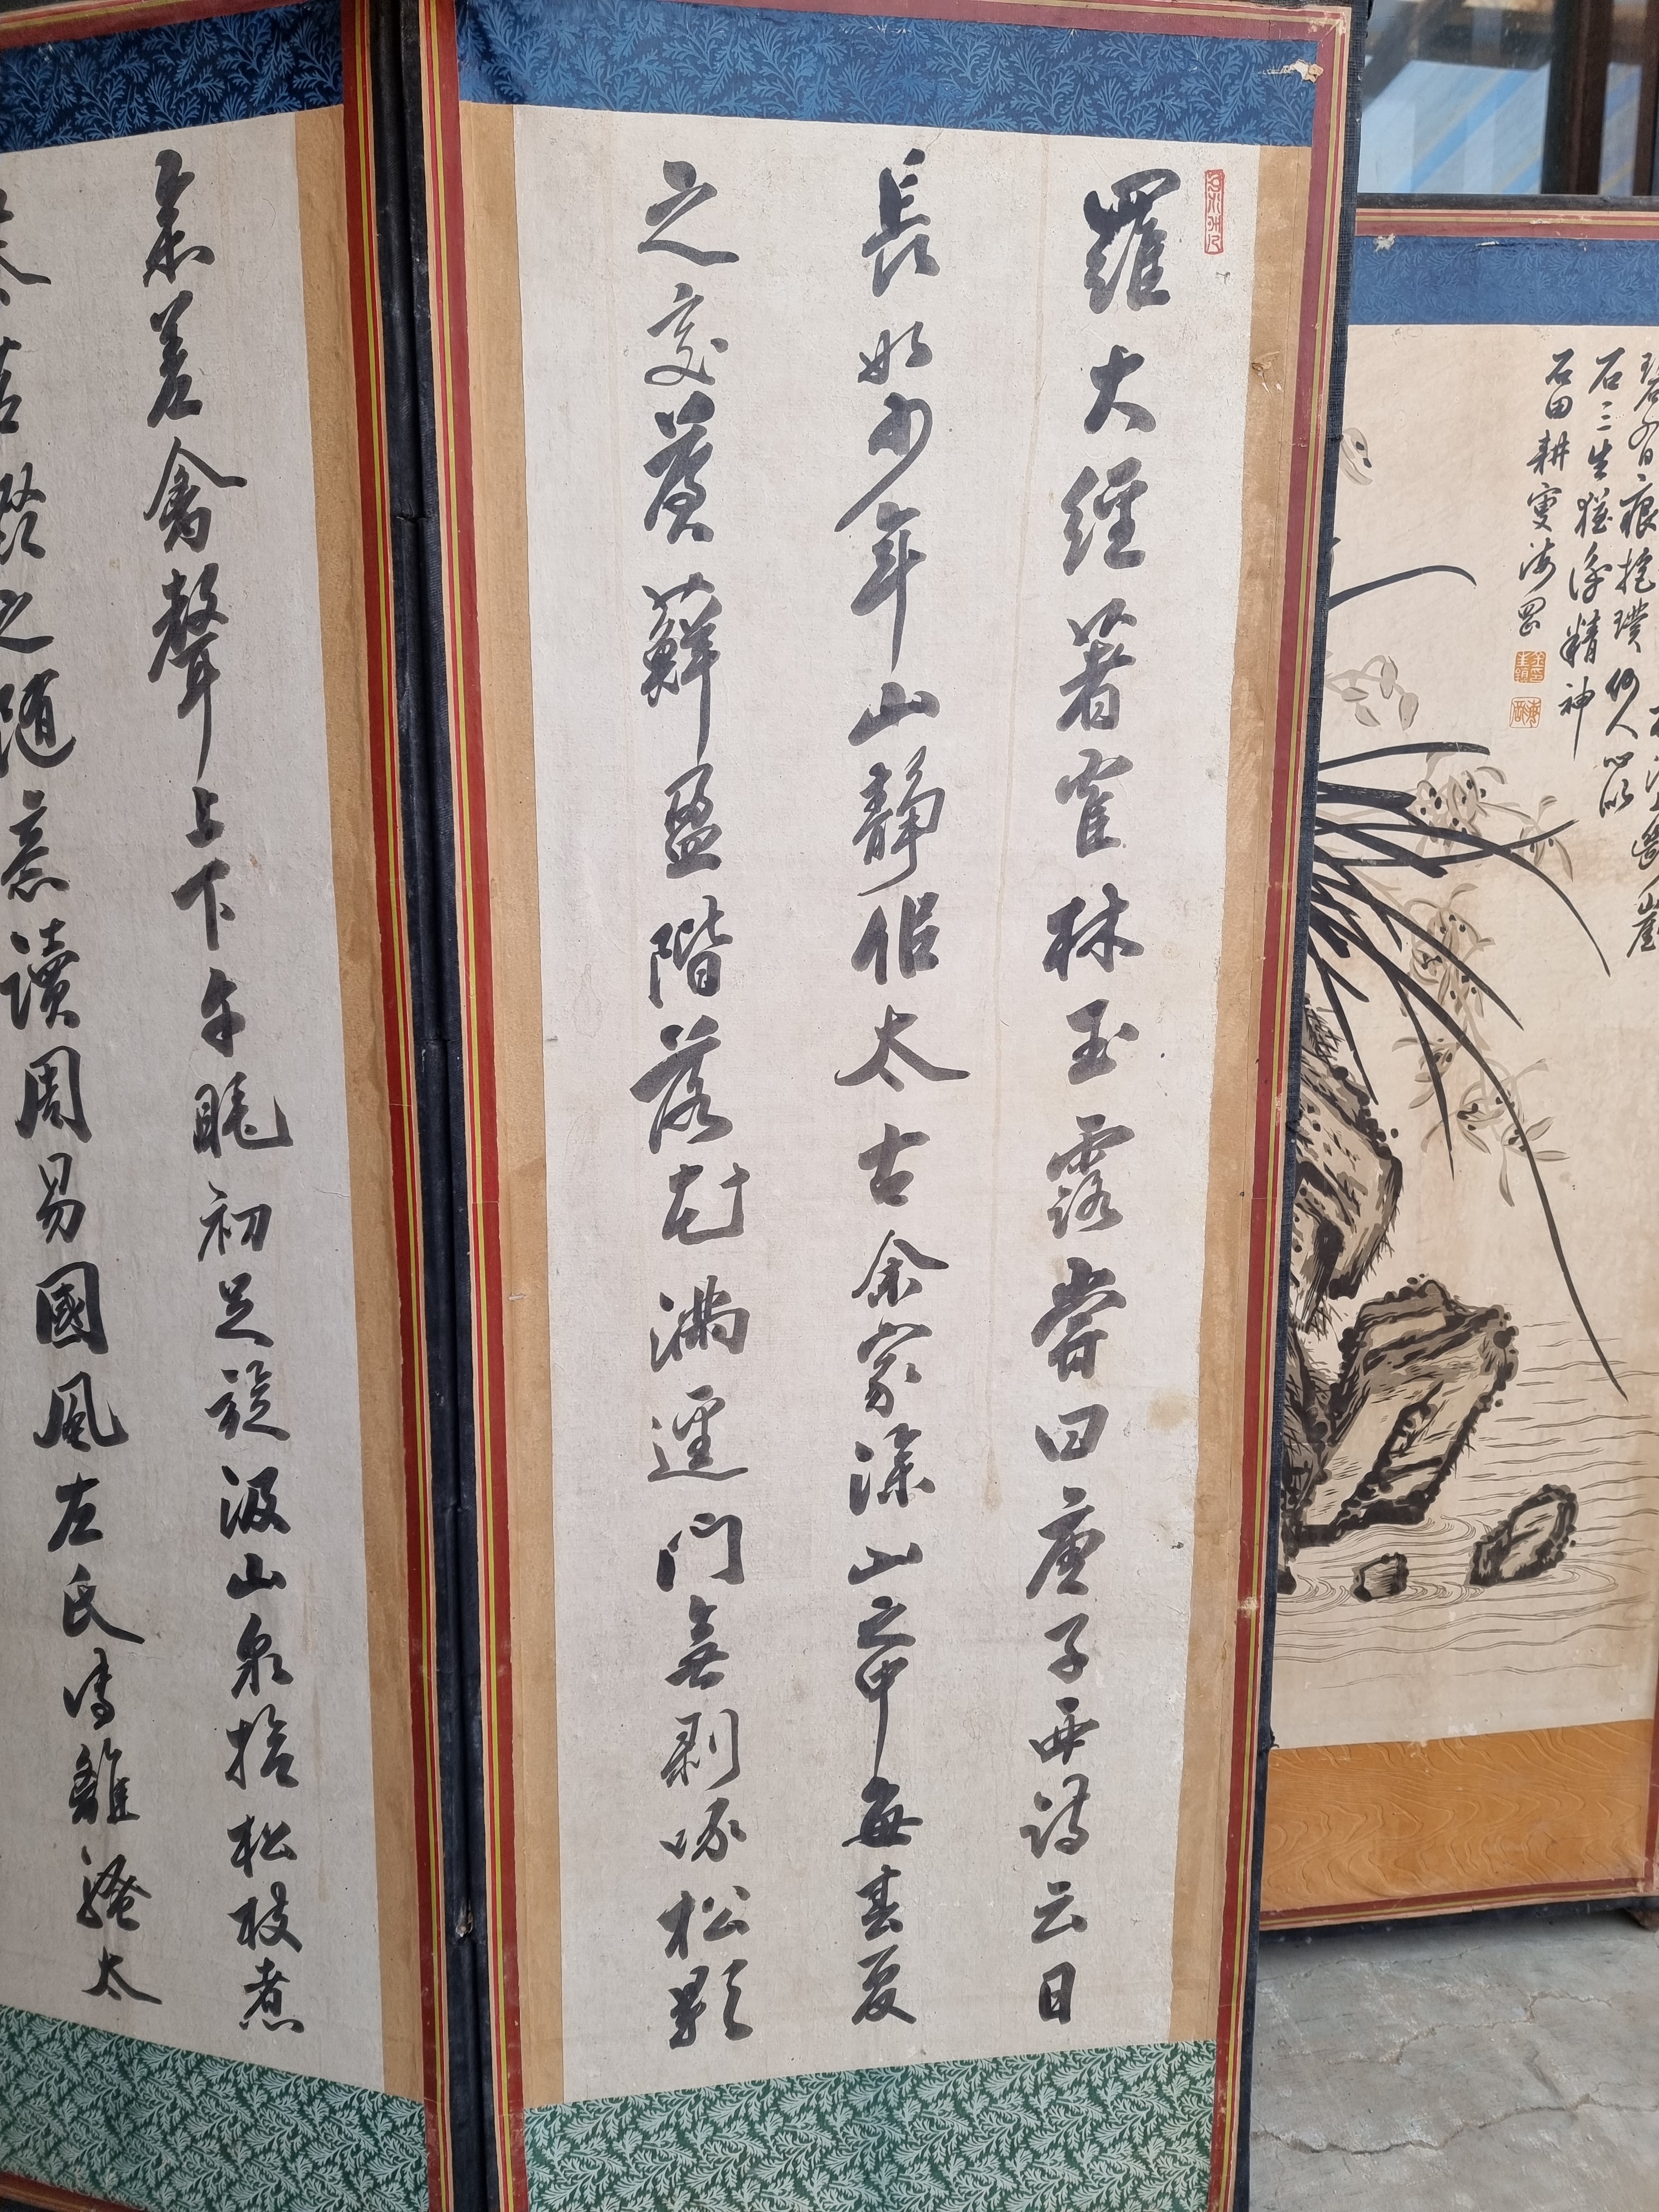 羅大經著隺林玉露嘗曰唐子西詩云日
長如少年山靜佀太古余家深山之中每春夏
之交蒼蘚盈階落花滿逕門無剥啄松影
參差禽聲上下午睡初足旋汲山泉拾松枝煮
茗啜之隨意讀周易國風左氏傳離騷太
石三生猶復精神
石田耕叟海岡